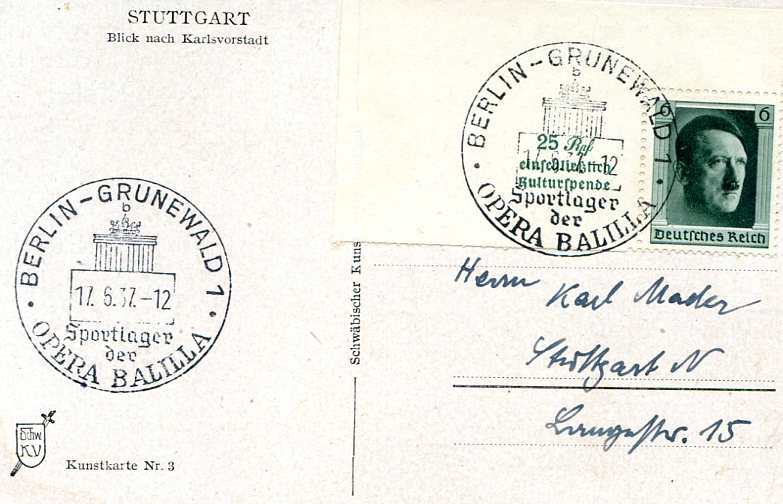 STUTTGART
Blick nach Karlsvorstadt
BERLIN-GRUNEWALD 1
b
17.6.37.-12
Sportlager
der
OPERA BALILLA
6
25 Rpf
einschließlich
Kulturspende
Deutsches Reich
BERLIN-GRUNEWALD 1
b
17.6.37.-12
Sportlager
der
OPERA BALILLA
Schwäbischer Kuns
Herrn Karl Mader
Stuttgart N
Langestr. 15
Schw
KV
Kunstkarte Nr. 3